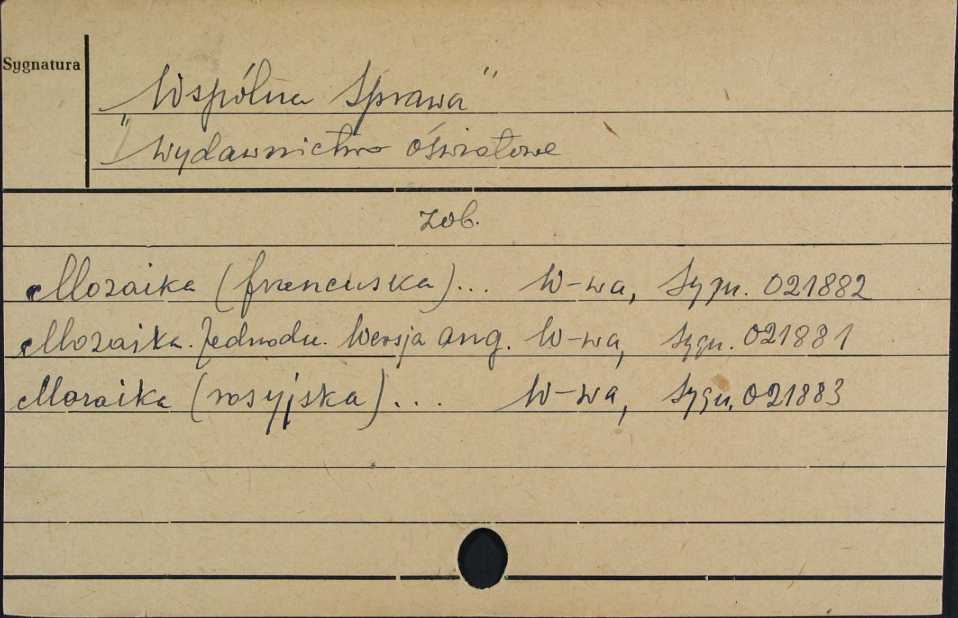 Sygnatura
"Wspólna Sprawa"
Wydawnictwo Oświatowe
zob.
Mozaika (francuska)... W-wa, Sygn. 021882
Mozaika. Jednodn. Wersja ang. W-wa, Sygn. 021881
Mozaika (rosyjska).... W-wa, Sygn. 021883